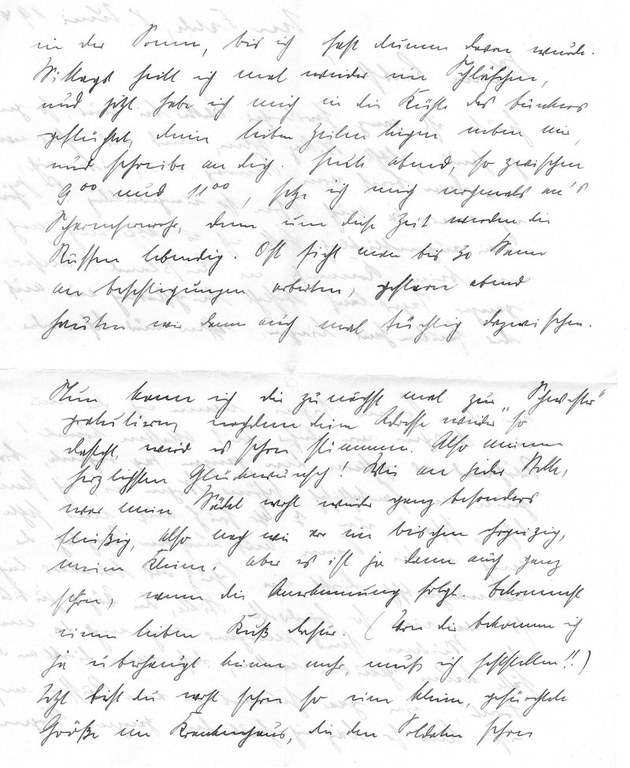 in der Sonne, bis ich fast dumm davon wurde.
Mittags hielt ich mal wieder ein Schläfchen,
und jetzt habe ich mich in die Kühle des Bunkers
geflüchtet, deine lieben Zeilen liegen neben mir,
und schreibe an dich. Heute abend, so zwischen
9⁰⁰ und 11⁰⁰, setze ich mich nochmals an's
Scherenfernrohr, denn um diese Zeit werden die
Russen lebendig. Oft sieht man bis 30 Mann
an Befestigungen arbeiten, gestern abend
hauten wir dann auch mal tüchtig dazwischen.
Nun kann ich dir zunächst mal zur „Schwester"
gratulieren, nachdem deine Adresse wieder so
dasteht, wird es schon stimmen. Also meinen
herzlichsten Glückwunsch! Wie an jeder Stelle,
war mein Mädel wohl wieder ganz besonders
fleißig, also nach wie vor ein bischen ehrgeizig,
meine Kleine. Aber es ist ja dann auch ganz
schön, wenn die Anerkennung folgt. Bekommst
einen lieben Kuß dafür. (Von dir bekomme ich
ja überhaupt keine mehr, muß ich feststellen!!)
Jetzt bist du wohl schon so eine kleine, gefürchtete
Größe im Krankenhaus, die den Soldaten schon